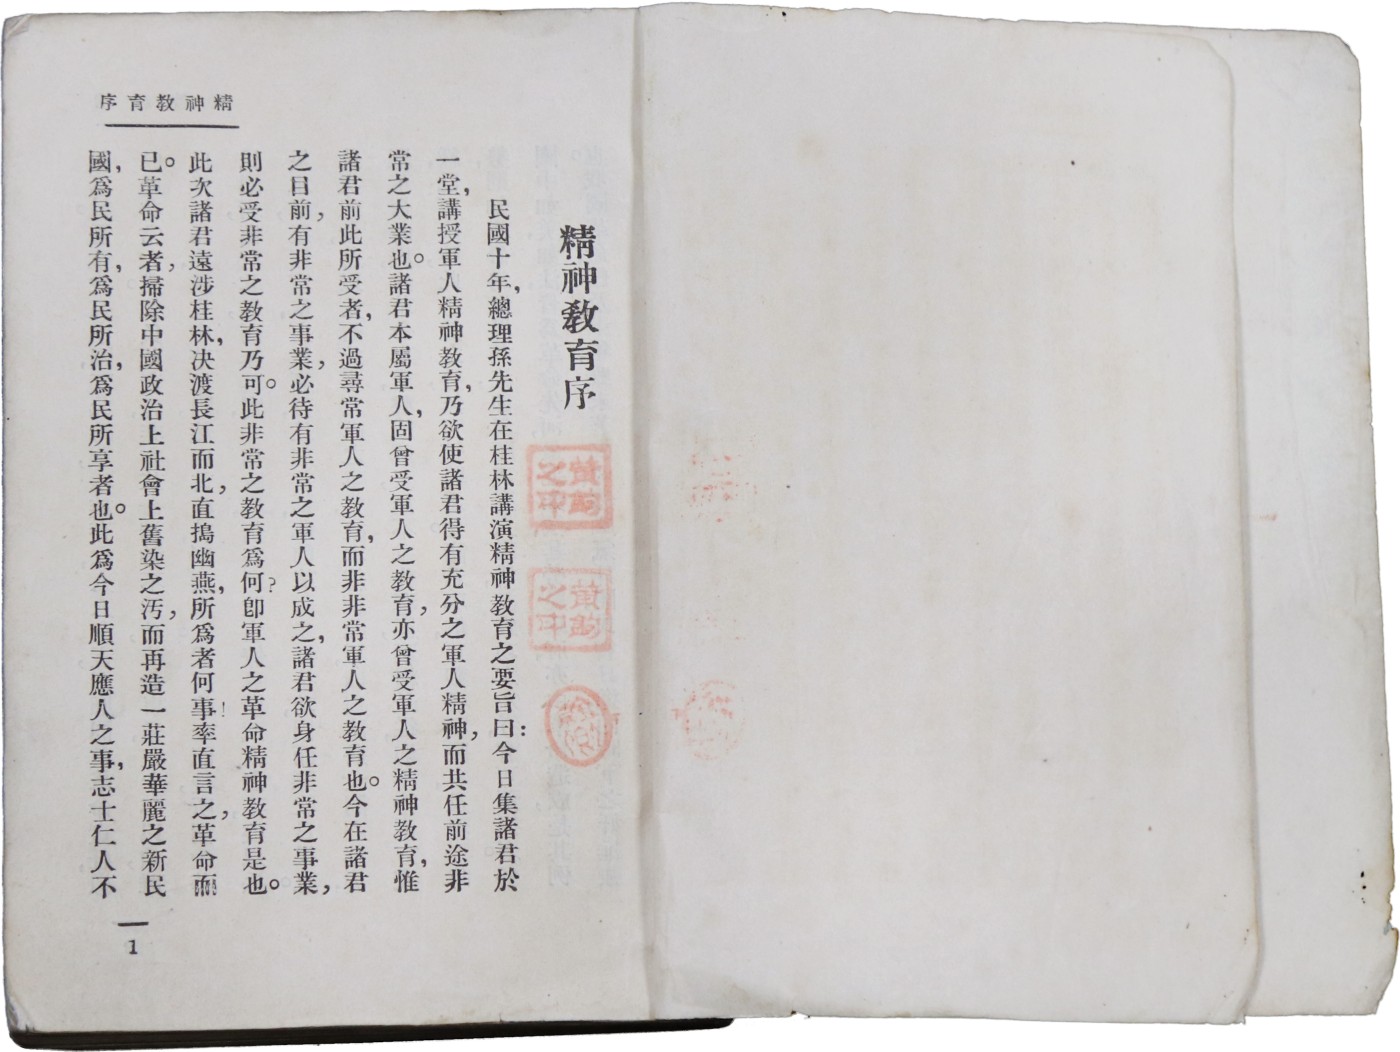 精神教育序
精神教育序
民國十年，總理孫先生在桂林講演精神教育之要旨曰：今日集諸君於
一堂，講授軍人精神教育，乃欲使諸君得有充分之軍人精神，而共任前途非
常之大業也。諸君本屬軍人，固曾受軍人之教育，亦曾受軍人之精神教育，惟
諸君前此所受者，不過尋常軍人之教育，而非非常軍人之教育也。今在諸君
之目前，有非常之事業，必待有非常之軍人以成之，諸君欲身任非常之事業，
則必受非常之教育乃可。此非常之教育爲何？卽軍人之革命精神教育是也。
此次諸君遠涉桂林，決渡長江而北，直搗幽燕，所爲者何事！率直言之，革命而
已。革命云者，掃除中國政治上社會上舊染之汚，而再造一莊嚴華麗之新民
國，爲民所有，爲民所治，爲民所享者也。此爲今日順天應人之事，志士仁人不
1